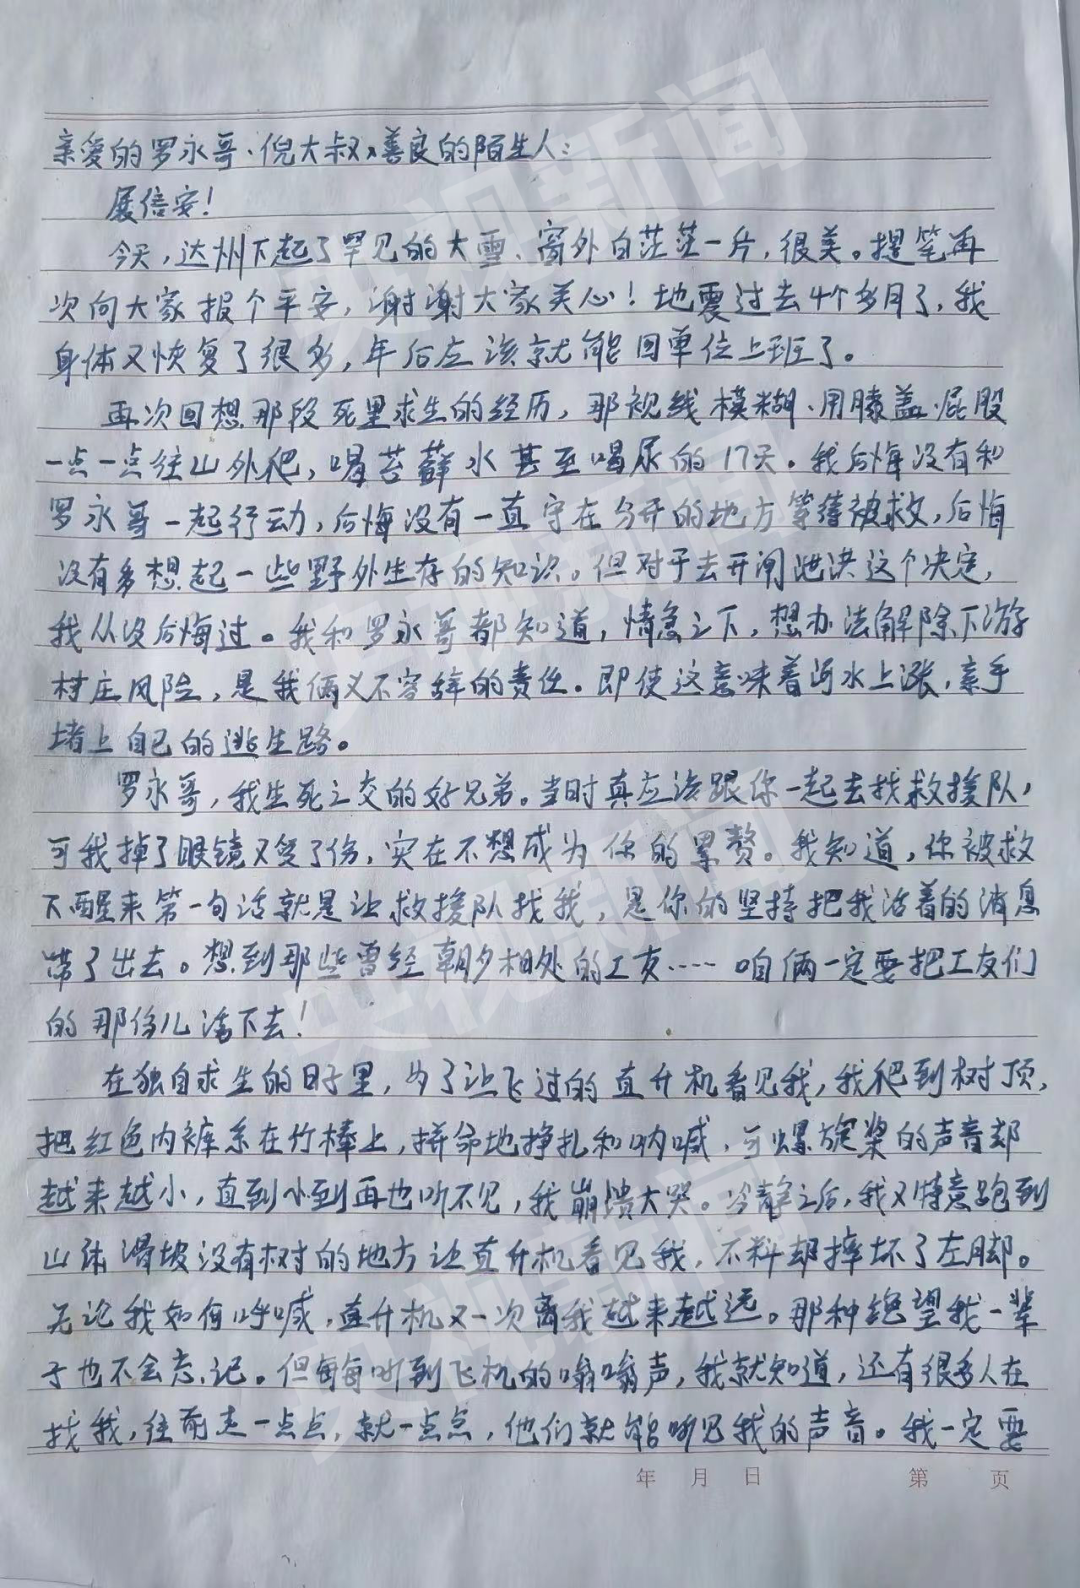 亲爱的罗永哥、倪大叔、善良的陌生人：
展信安！
今天，达州下起了罕见的大雪、窗外白茫茫一片，很美。提笔再
次向大家报个平安，谢谢大家关心！地震过去4个多月了，我
身体又恢复了很多，年后应该就能回单位上班了。
再次回想那段死里求生的经历，那视线模糊、用膝盖、屁股
一点一点往山外爬，喝苔藓水甚至喝尿的17天。我后悔没有和
罗永哥一起行动，后悔没有一直守在分开的地方等待被救，后悔
没有多想起一些野外生存的知识。但对于去开闸泄洪这个决定，
我从没后悔过。我和罗永哥都知道，情急之下，想办法解除下游
村庄风险，是我俩义不容辞的责任。即使这意味着河水上涨，亲手
堵上自己的逃生路。
罗永哥，我生死之交的好兄弟。当时真应该跟你一起去找救援队，
可我掉了眼镜又受了伤，实在不想成为你的累赘。我知道，你被救
下醒来第一句话就是让救援队找我，是你的坚持把我活着的消息
带了出去。想到那些曾经朝夕相处的工友……咱俩一定要把工友们
的那份儿活下去！
在独自求生的日子里，为了让飞过的直升机看见我，我爬到树顶，
把红色内裤系在竹棒上，拼命地挣扎和呐喊，可螺旋桨的声音却
越来越小，直到小到再也听不见，我崩溃大哭。冷静之后，我又特意跑到
山体滑坡没有树的地方让直升机看见我，不料却摔坏了左脚。
无论我如何呼喊，直升机又一次离我越来越远。那种绝望我一辈
子也不会忘记。但每每听到飞机的嗡嗡声，我就知道，还有很多人在
找我，往前走一点点，就一点点，他们就能听见我的声音。我一定要
年 月 日 第 页
央视新闻
央视新闻
央视新闻
央视新闻